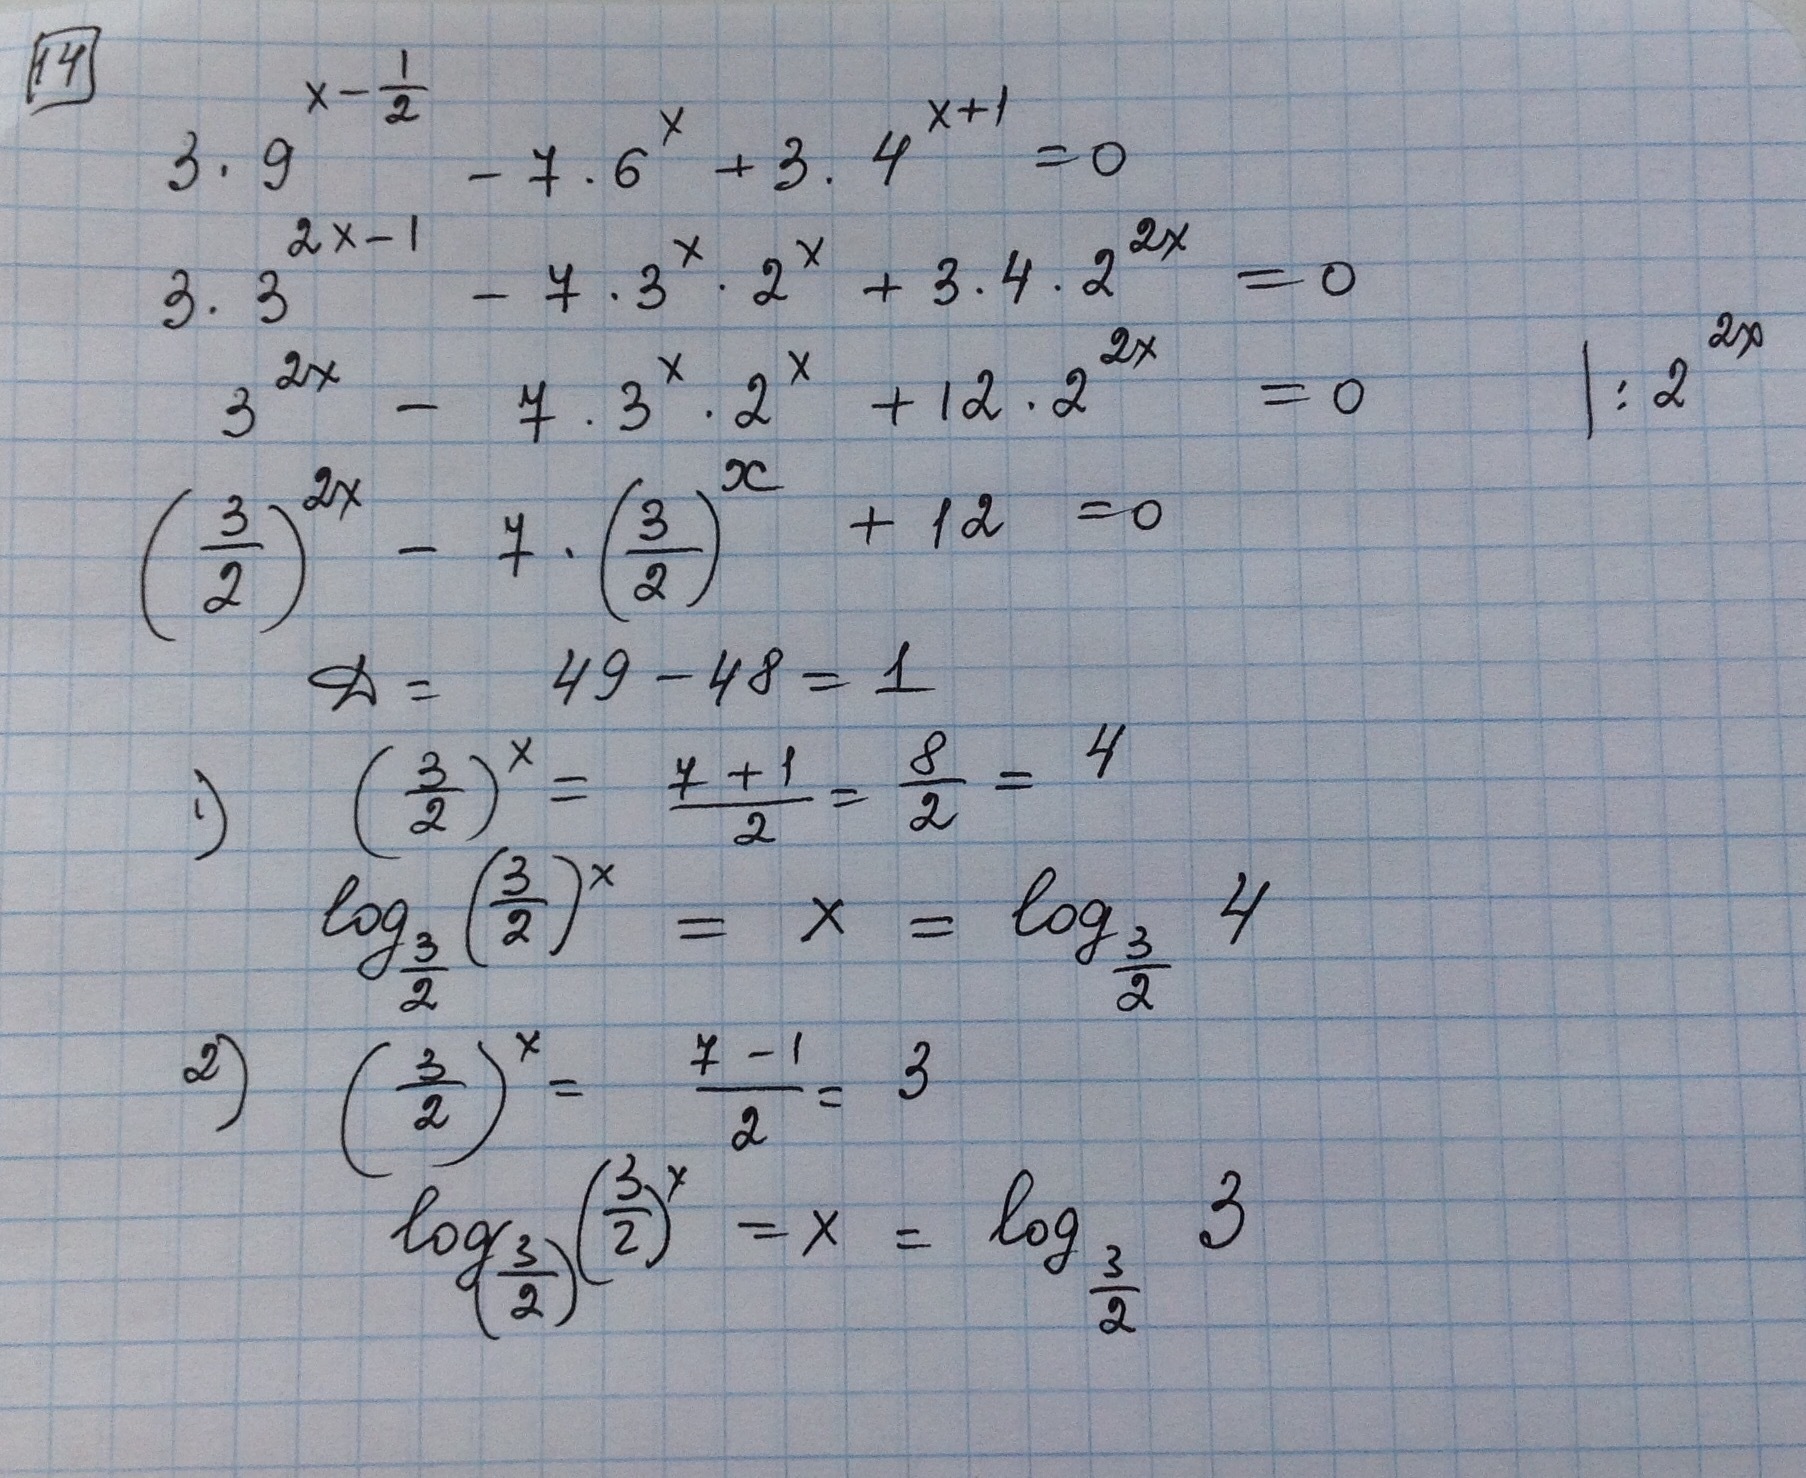 14
3 · 9^(x - 1/2) - 7 · 6^x + 3 · 4^(x+1) = 0
3 · 3^(2x-1) - 7 · 3^x · 2^x + 3 · 4 · 2^(2x) = 0
3^(2x) - 7 · 3^x · 2^x + 12 · 2^(2x) = 0 | : 2^(2x)
(3/2)^(2x) - 7 · (3/2)^x + 12 = 0
D = 49 - 48 = 1
1) (3/2)^x = (7 + 1)/2 = 8/2 = 4
log_(3/2) (3/2)^x = x = log_(3/2) 4
2) (3/2)^x = (7 - 1)/2 = 3
log_(3/2) (3/2)^x = x = log_(3/2) 3